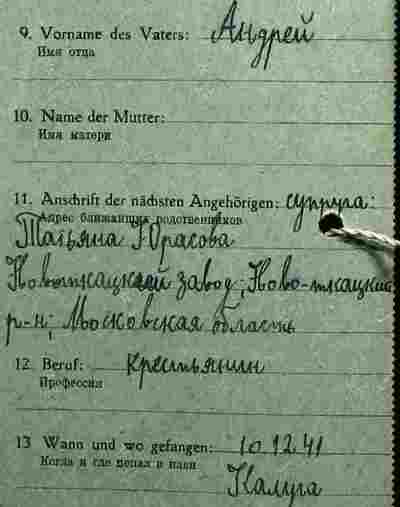 9. Vorname des Vaters: Андрей
Имя отца
10. Name der Mutter:
Имя матери
11. Anschrift der nächsten Angehörigen: супруга:
Адрес ближайших родственников
Татьяна Юрасова
Новоткацкий завод, Ново-ткацкий
р-н, Московская область
12. Beruf: Крестьянин
Профессия
13 Wann und wo gefangen: 10.12.41
Когда и где попал в плен
Калуга